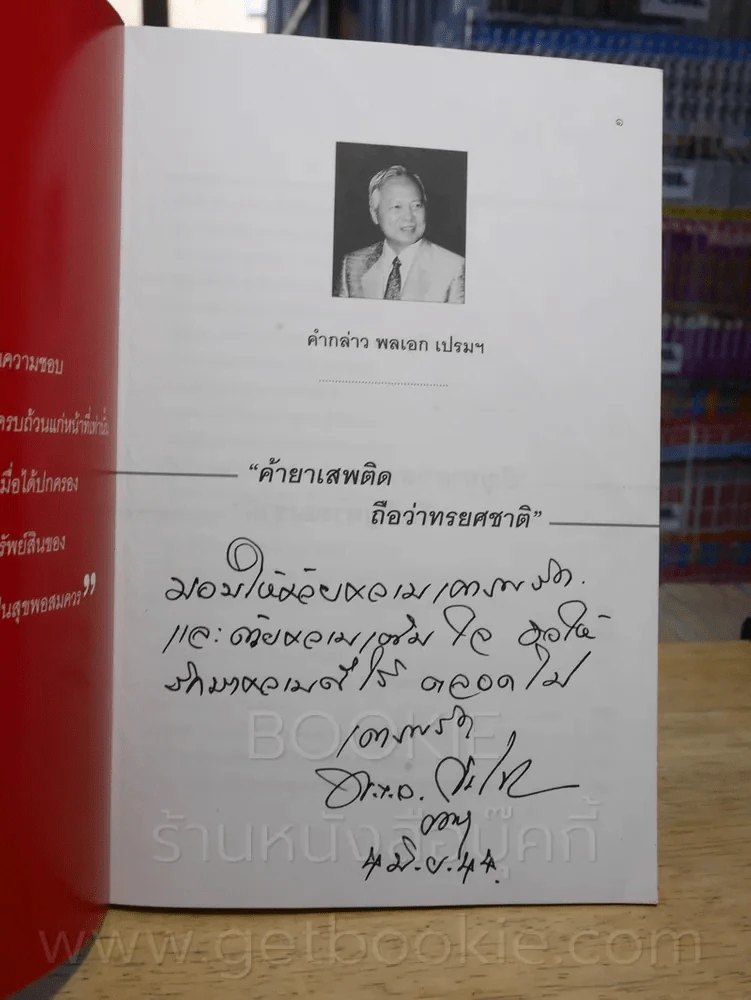 นความชอบ
ครบถ้วนแก่หน้าที่เท่านั้น
มื่อได้ปกครอง
รัพย์สินของ
ป็นสุขพอสมควร”
๑
คำกล่าว พลเอก เปรมฯ
“ค้ายาเสพติด
ถือว่าทรยศชาติ”
มอบให้ด้วยความเคารพรัก
และด้วยความเต็มใจ ขอให้
รักษาความดีไว้ ตลอดไป
เคารพรัก
๔ มิ.ย. ๔๔
BOOKIE
ร้านหนังสือบุ๊คกี้
www.getbookie.com